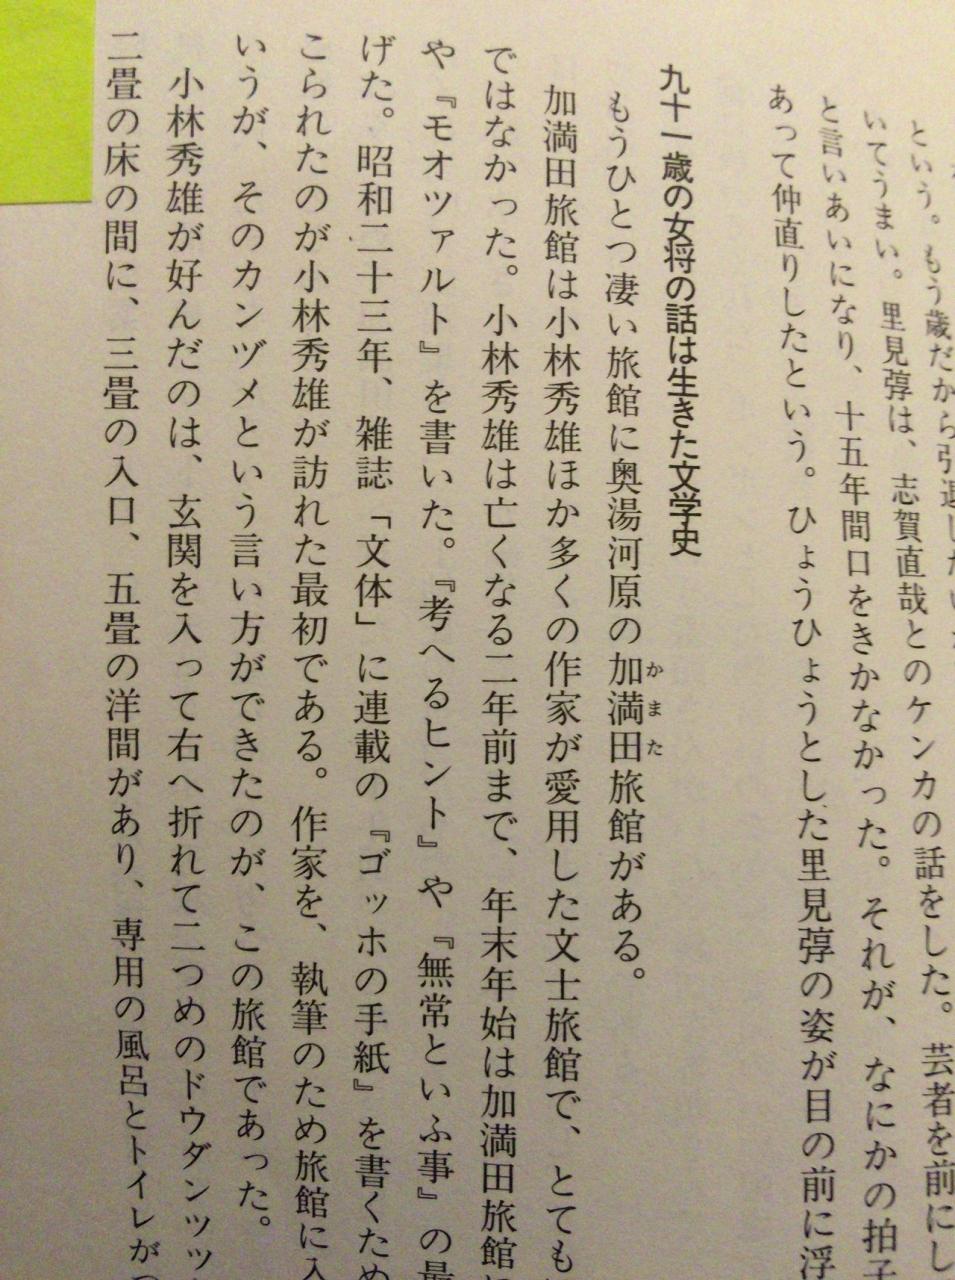 という。もう歳だから引退したい
いてうまい。里見弴は、志賀直哉とのケンカの話をした。芸者を前にし
と言いあいになり、十五年間口をきかなかった。それが、なにかの拍子
あって仲直りしたという。ひょうひょうとした里見弴の姿が目の前に浮
九十一歳の女将の話は生きた文学史
もうひとつ凄い旅館に奥湯河原の加満田旅館がある。
かまた
加満田旅館は小林秀雄ほか多くの作家が愛用した文士旅館で、とても
ではなかった。小林秀雄は亡くなる二年前まで、年末年始は加満田旅館に
や『モオツァルト』を書いた。『考へるヒント』や『無常といふ事』の最
げた。昭和二十三年、雑誌「文体」に連載の『ゴッホの手紙』を書くため
こられたのが小林秀雄が訪れた最初である。作家を、執筆のため旅館に入
いうが、そのカンヅメという言い方ができたのが、この旅館であった。
小林秀雄が好んだのは、玄関を入って右へ折れて二つめのドウダンツツ
二畳の床の間に、三畳の入口、五畳の洋間があり、専用の風呂とトイレがつ